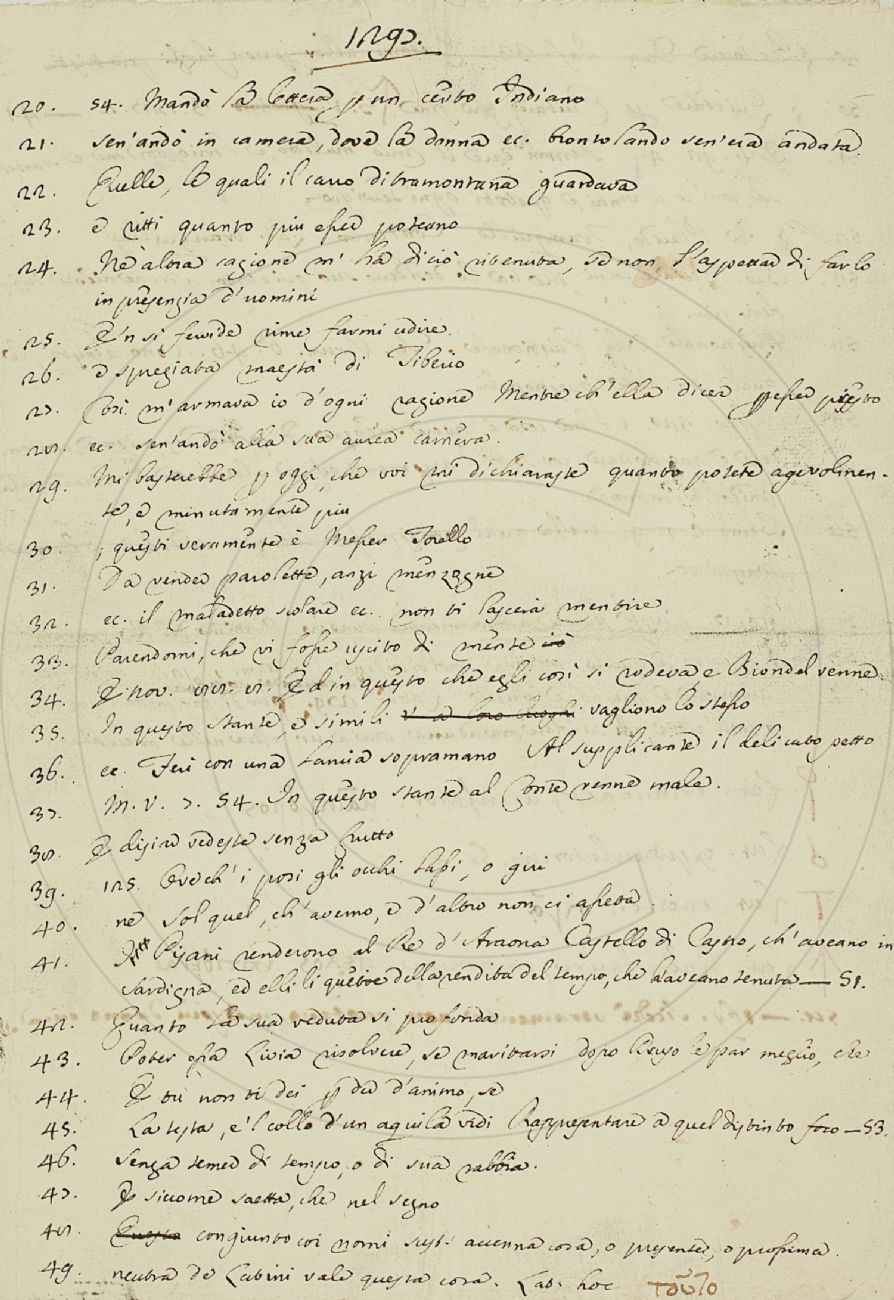 1297.
20. 54. Mandò la lettera p un certo Indiano
21. sen'andò in camera, dove la donna ec. brontolando sen'era andata.
22. Quelle, le quali il carro di tramontana guardava
23. e ritti quanto più esser poteano
24. Nè altra cagione m'ha di ciò ritenuta, se non l'aspettar di farlo
in presenzia d'uomini
25. E'n sì fervide rime farmi udire.
26. e spregiata maestà di Tiberio
27. Così m'armava io d'ogni ragione Mentre ch'ella dicea p esser presto
28. ec. sen'andò alla sua camera.
29. Mi basterebbe p oggi, che voi mi dichiaraste quanto potete agevolmen-
te, e minutamente più
30. ; questi veramente è Messer Torello
31. Da vender parolette, anzi menzogne
32. ec. il maladetto scolare ec. non ti lascerà mentire
33. Parendomi, che vi fosse uscito di mente ciò
34. E nov. 88. 8. Ed in questo che egli così si rodeva, e Biondel venne.
35. In questo stante, e simili vagliono lo stesso
36. ec. Ferì con una lancia sopramano Al supplicante il delicato petto
37. M. V. 7. 54. In questo stante al Conte venne male.
38. E disiar vedeste senza frutto
39. 125. Ove ch'i posi gli occhi lassi, o giri
40. ne sol quel, ch'avemo, e d'altro non ci assetta.
41. I Pisani renderono al Re d'Araona Castello di Castro, ch'aveano in
Sardigna, ed elli li quetoe della rendita del tempo, che l'aveano tenuta — 51.
42. Quanto la sua veduta si profonda
43. Poter essa Livia risolvere, se maritarsi dopo Druso le par meglio, che
44. E tu non ti dei p der d'animo, se
45. La testa, e'l collo d'un aquila vidi Rappresentare a quel distinto foco — 53.
46. Senza temer di tempo, o di sua rabbia.
47. E siccome saetta, che nel segno
48. Questo congiunto coi nomi sust. accenna cosa, o presente, o prossima.
49. neutra de Latini vale questa cosa. Lat. hoc